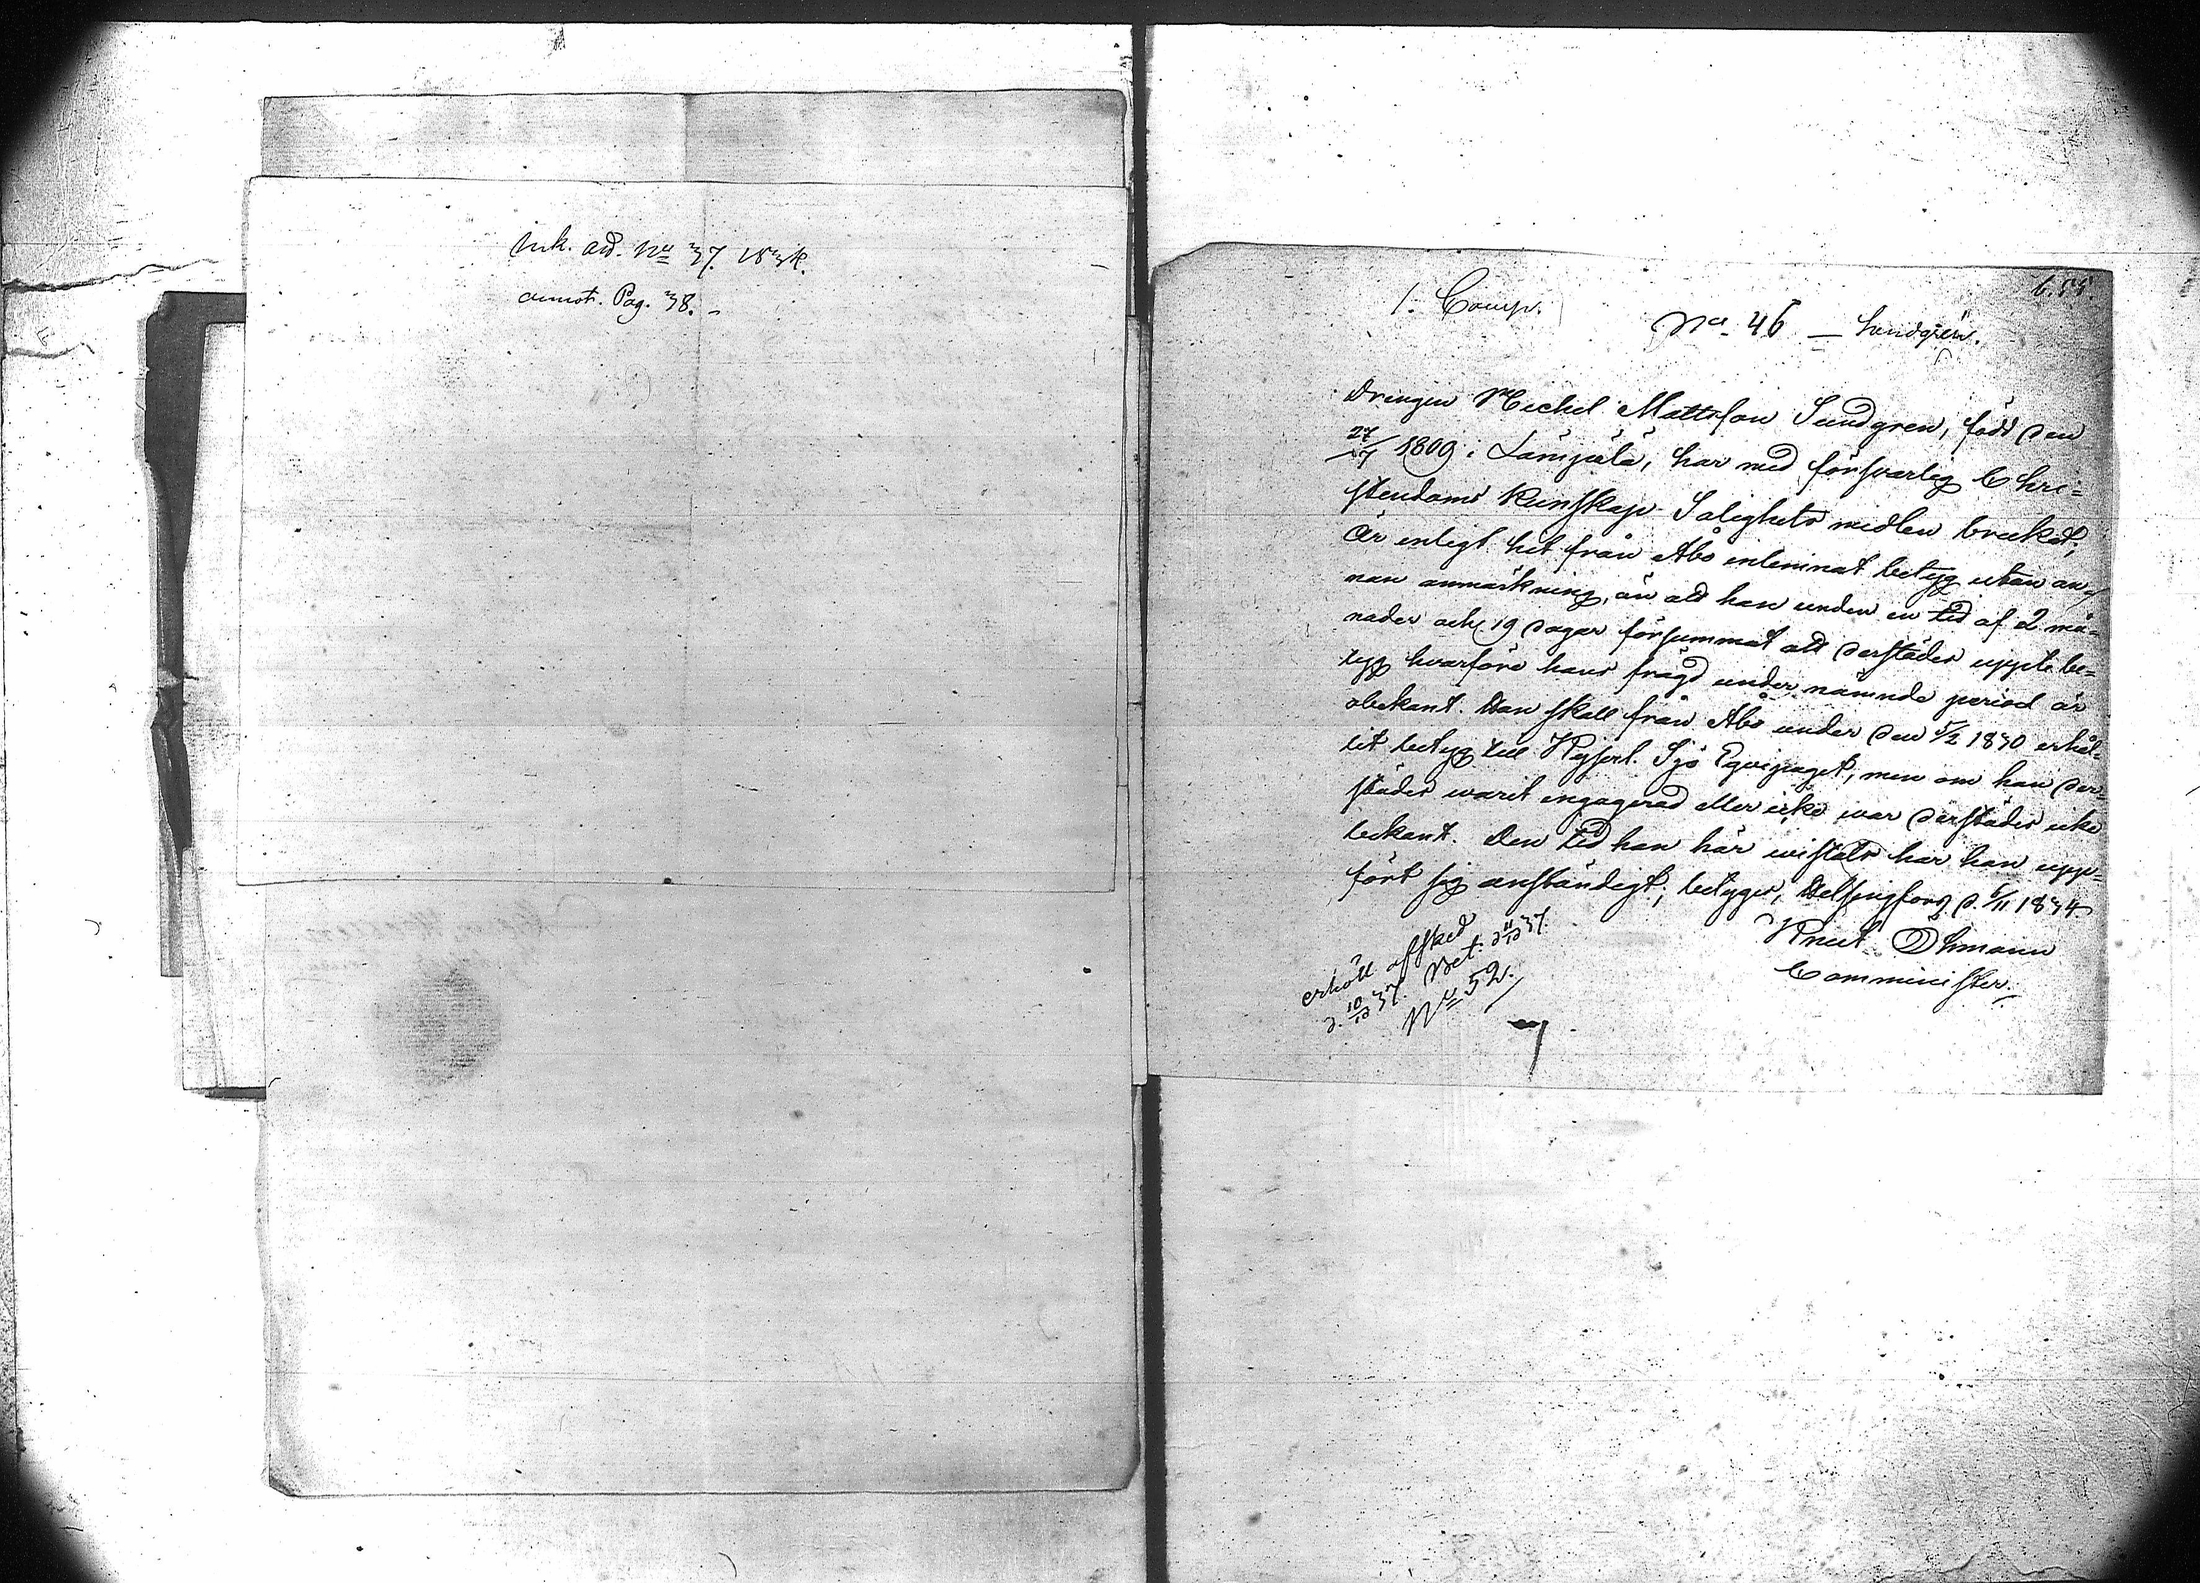 Ink. att. No 37. 1834.
annot. Pag. 38.
6.55.
1. Comp.
No 46 — Sundgrén.
Drengen Michel Mattsson Sundgren, född den
27/7 1809 i Lämjälä, har med försvarlig Chri=
stendoms kunskap Salighets medlen brukat;
är enligt hit från Åbo inlemnat betyg utan an=
nan anmärkning, än att han under en tid af 2 må=
nader och 19 dagar försummat att derstädes uppte be=
tyg hvarföre hans frägd under nämnde period är
obekant. Han skall från Åbo under den 5/2 1830 erhål=
lit betyg till Kejserl. Sjö Eqvipaget, men om han der=
städes warit engagerad eller icke war derstädes icke
bekant. Den tid han här wistats har han upp=
fört sig anständigt, betyger, Helsingfors d. 6/11 1834.
Knut Öhmann
Comminister.
erhöll afsked
d. 10/12 37. Bet. d 11/12 37.
No 52.